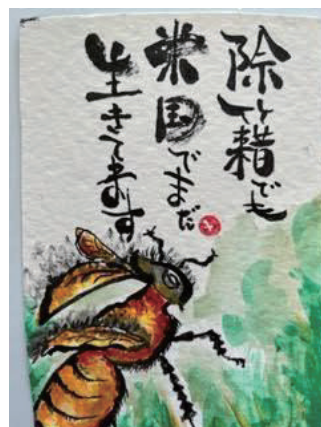 除籍でも
米国でまだ
生きてます